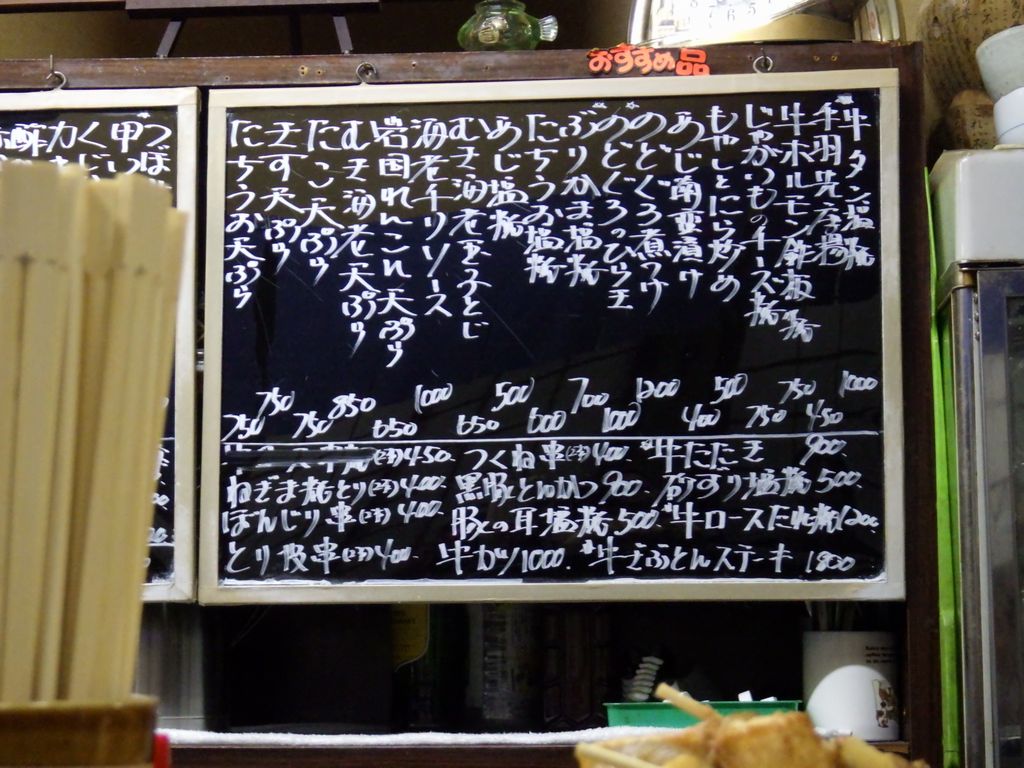 おすすめ品
牛タン塩焼
手羽先唐揚
牛ホルモン鉄板焼
じゃがいものチーズ焼
もやしとにら炒め
あじ南蛮漬け
のどぐろ煮つけ
のどぐろのひらき
ぶりかま塩焼
たちうお塩焼
あじ塩焼
むき海老玉子とじ
海老チリソース
岩国れんこん天ぷら
むき海老天ぷら
たこ天ぷら
きす天ぷら
たちうお天ぷら
750 850 1000 500 700 1200 500 750 1000
750 750 650 650 600 1000 400 750 450
(2本)450 つくね串(2本)400 牛たたき 900
ねぎま焼とり(2本)400 黒豚とんかつ 900 砂ずり塩焼 500
ぼんじり串(2本)400 豚の耳塩焼 500 牛ロースたれ焼 1200
とり皮串(2本)400 牛カツ 1000 牛さぶとんステーキ 1800